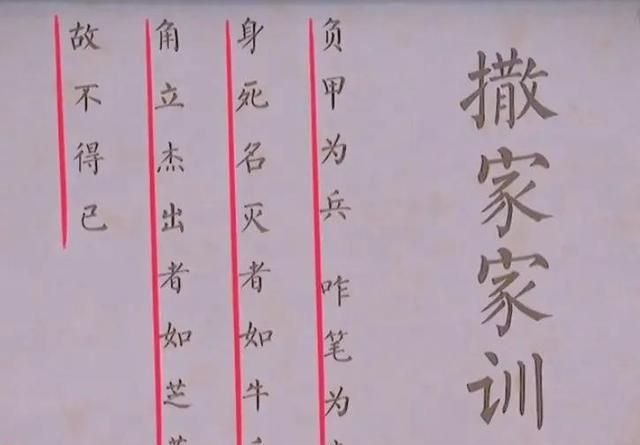 撒家家训
负甲为兵 咋笔为
身死名灭者如牛
角立杰出者如芝
故不得已